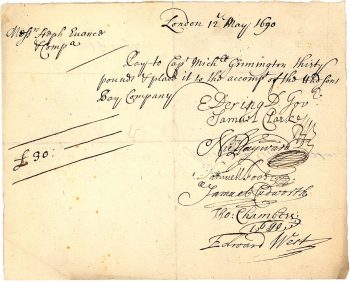 London 12 May 1690
Mess.rs Steph Evance
& Compa
Pay to Cap.t Mich.ll Grimington thirty
pounds & place it to the accomp.t of the Hudsons
Bay Company
E Dering D Gov
Samuel Clarke
£30:
Nic Hayward
Samuel Cudworth
Tho: Chambers
Edward West